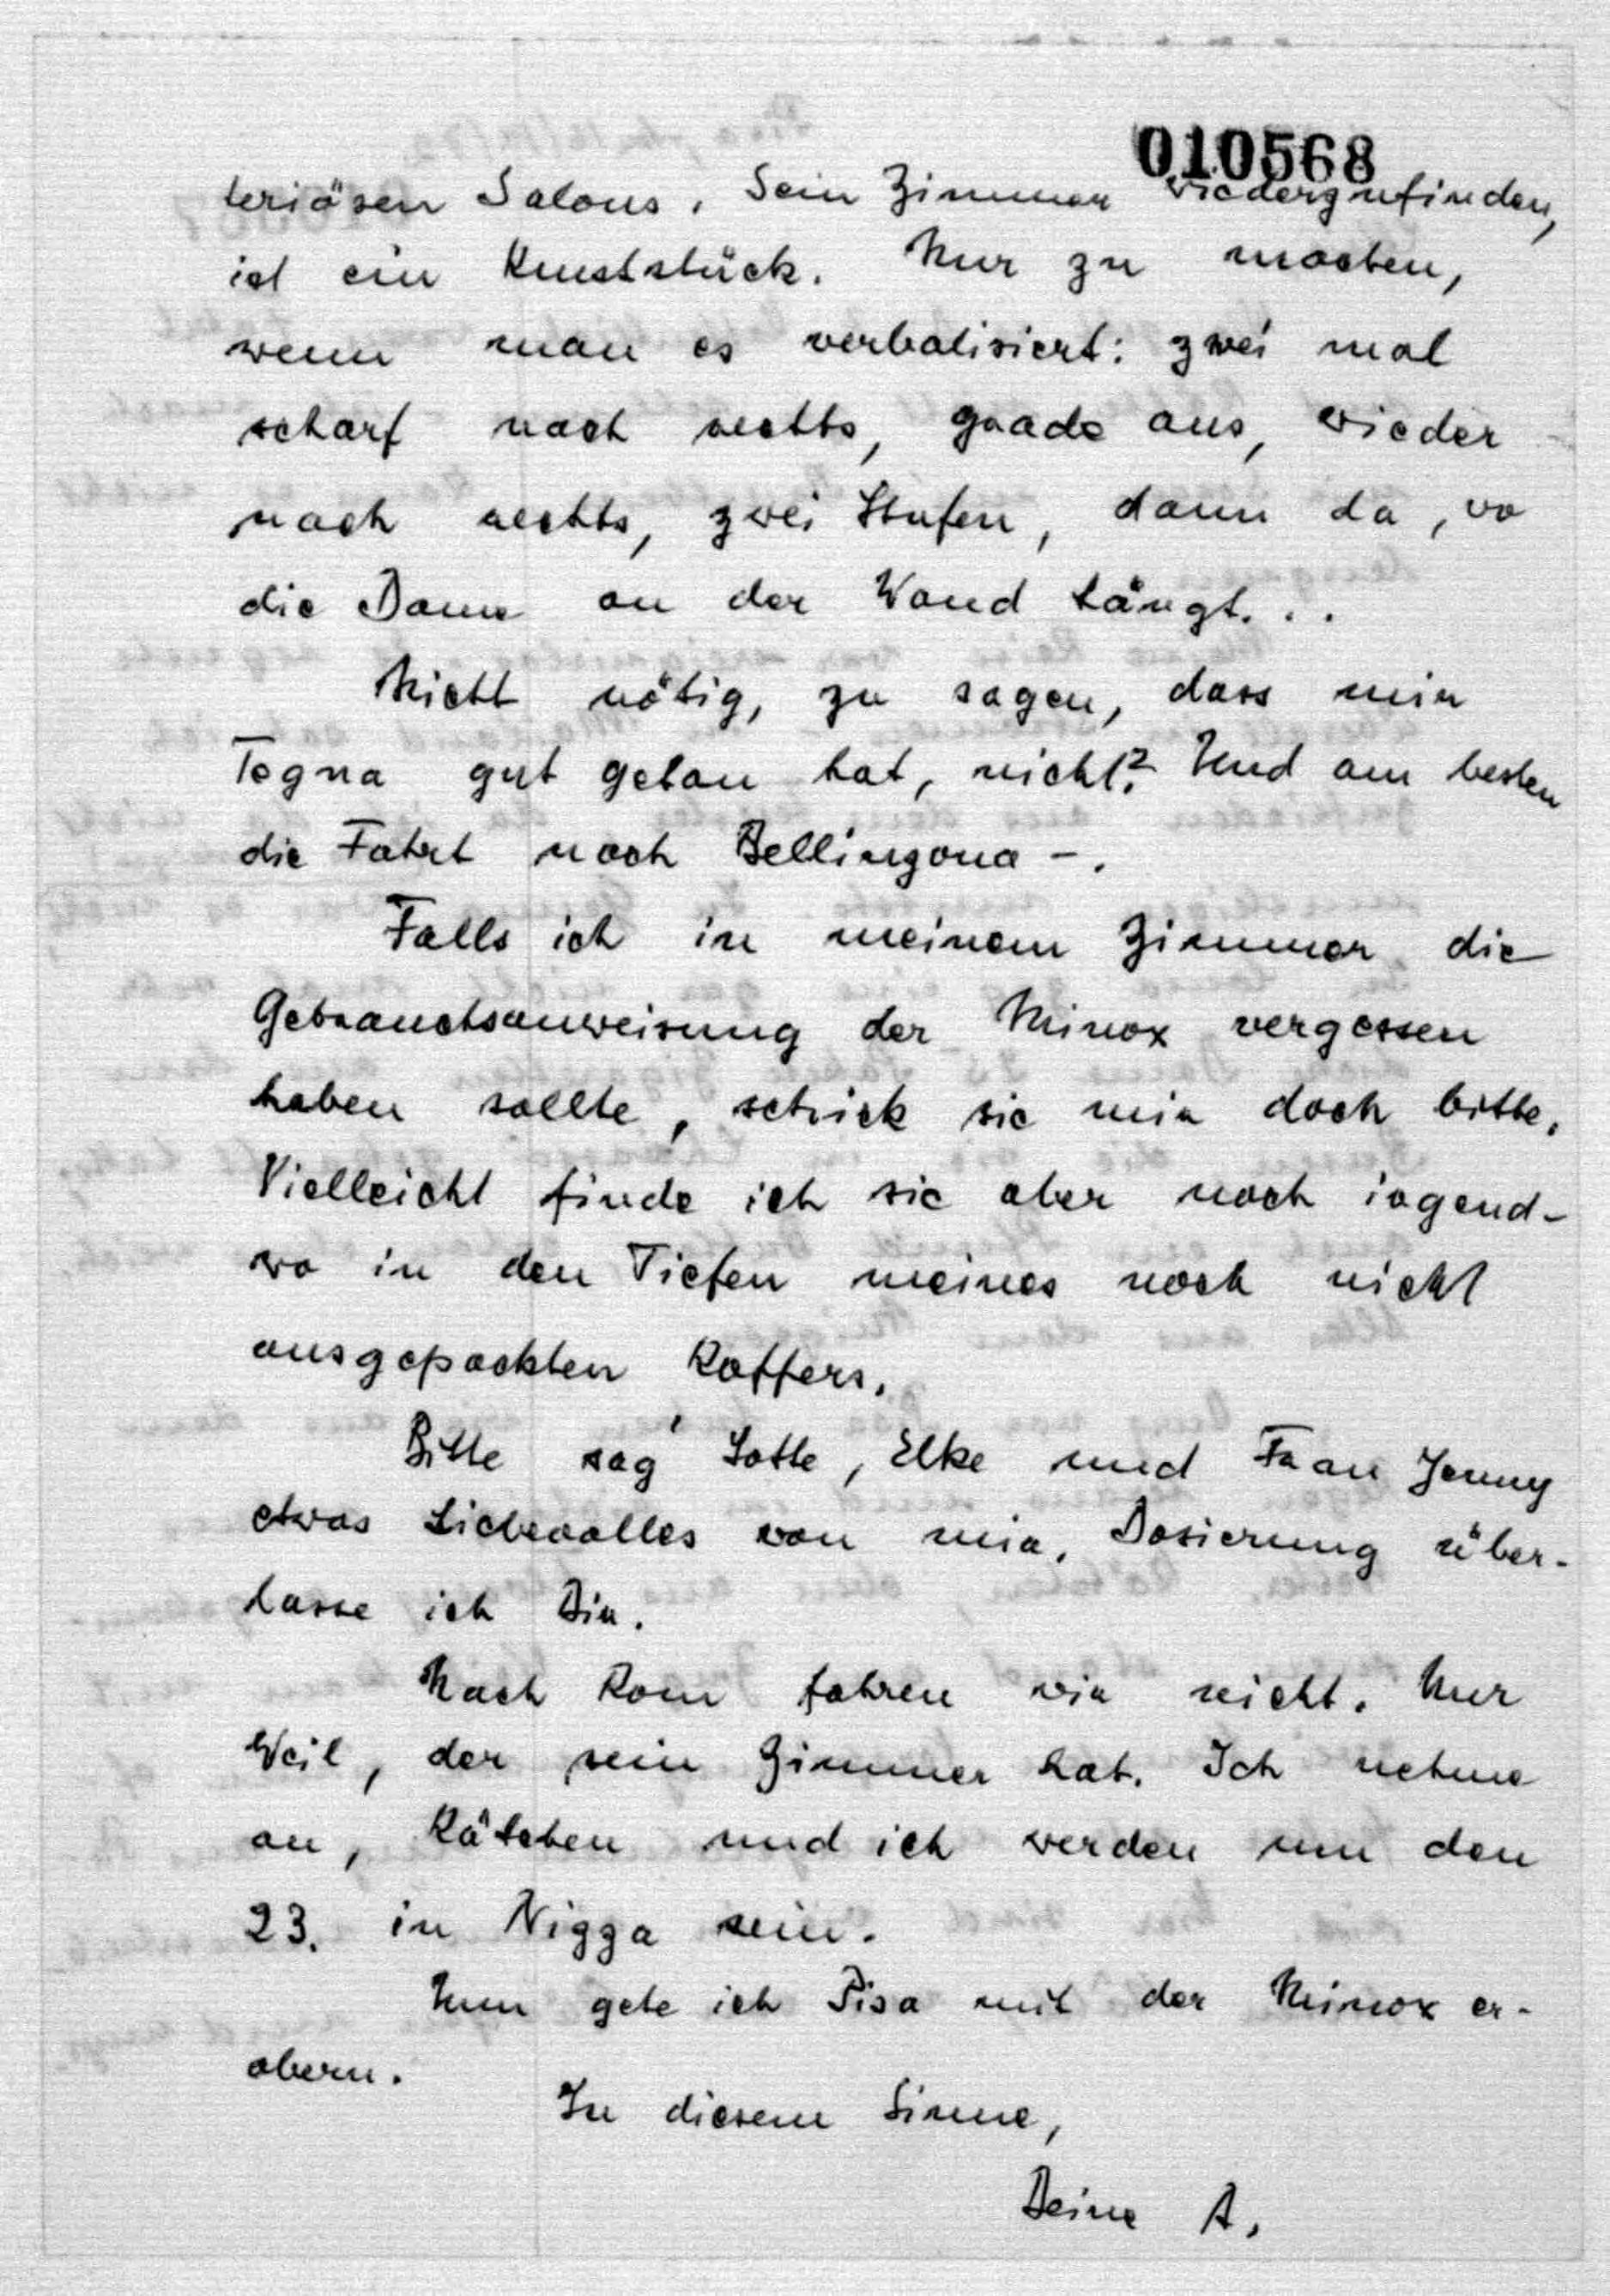 010568
teriösen Salons. Sein Zimmer wiederzufinden,
ist ein Kunststück. Nur zu machen,
wenn man es verbalisiert: zwei mal
scharf nach rechts, grade aus, wieder
nach rechts, zwei Stufen, dann da, wo
die Dame an der Wand hängt...
Nicht nötig, zu sagen, dass mir
Tegna gut getan hat, nicht? Und am besten
die Fahrt nach Bellinzona -.
Falls ich in meinem Zimmer die
Gebrauchsanweisung der Minox vergessen
haben sollte, schick sie mir doch bitte.
Vielleicht finde ich sie aber noch irgend-
wo in den Tiefen meines noch nicht
ausgepackten Koffers.
Bitte sag' Lotte, Elke und Frau Jenny
etwas Liebevolles von mir. Dosierung über-
lasse ich Dir.
Nach Rom fahren wir nicht. Nur
Weil, der sein Zimmer hat. Ich nehme
an, Kätchen und ich werden um den
23. in Nizza sein.
Nun gehe ich Pisa mit der Minox er-
obern.
In diesem Sinne,
Deine A.